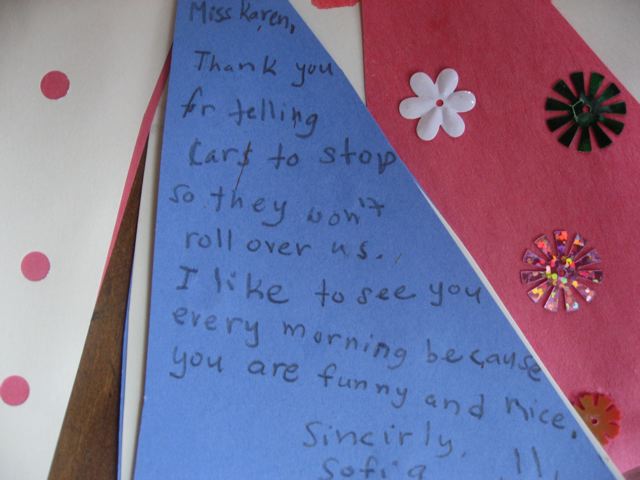 Miss Karen,
Thank you
for telling
Cars to stop
so they won't
roll over us.
I like to see you
every morning because
you are funny and nice.
Sincirly,
Sofia